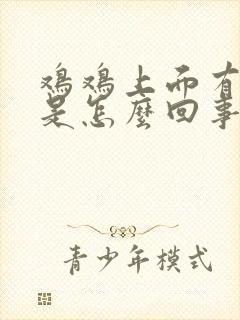 鸡鸡上而有
是怎麼回事
青少年模式